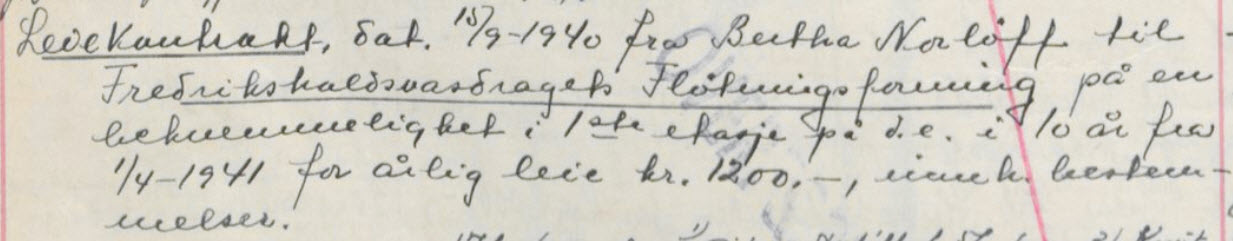 Leiekontrakt, dat. 15/9-1940 fra Bertha Norløff til
Fredrikshaldsvasdragets Fløtningsforening på en
bekvemmelighet i 1ste etasje på d.e. i 10 år fra
1/4-1941 for årlig leie kr. 1200.-, inneh. bestem-
melser.